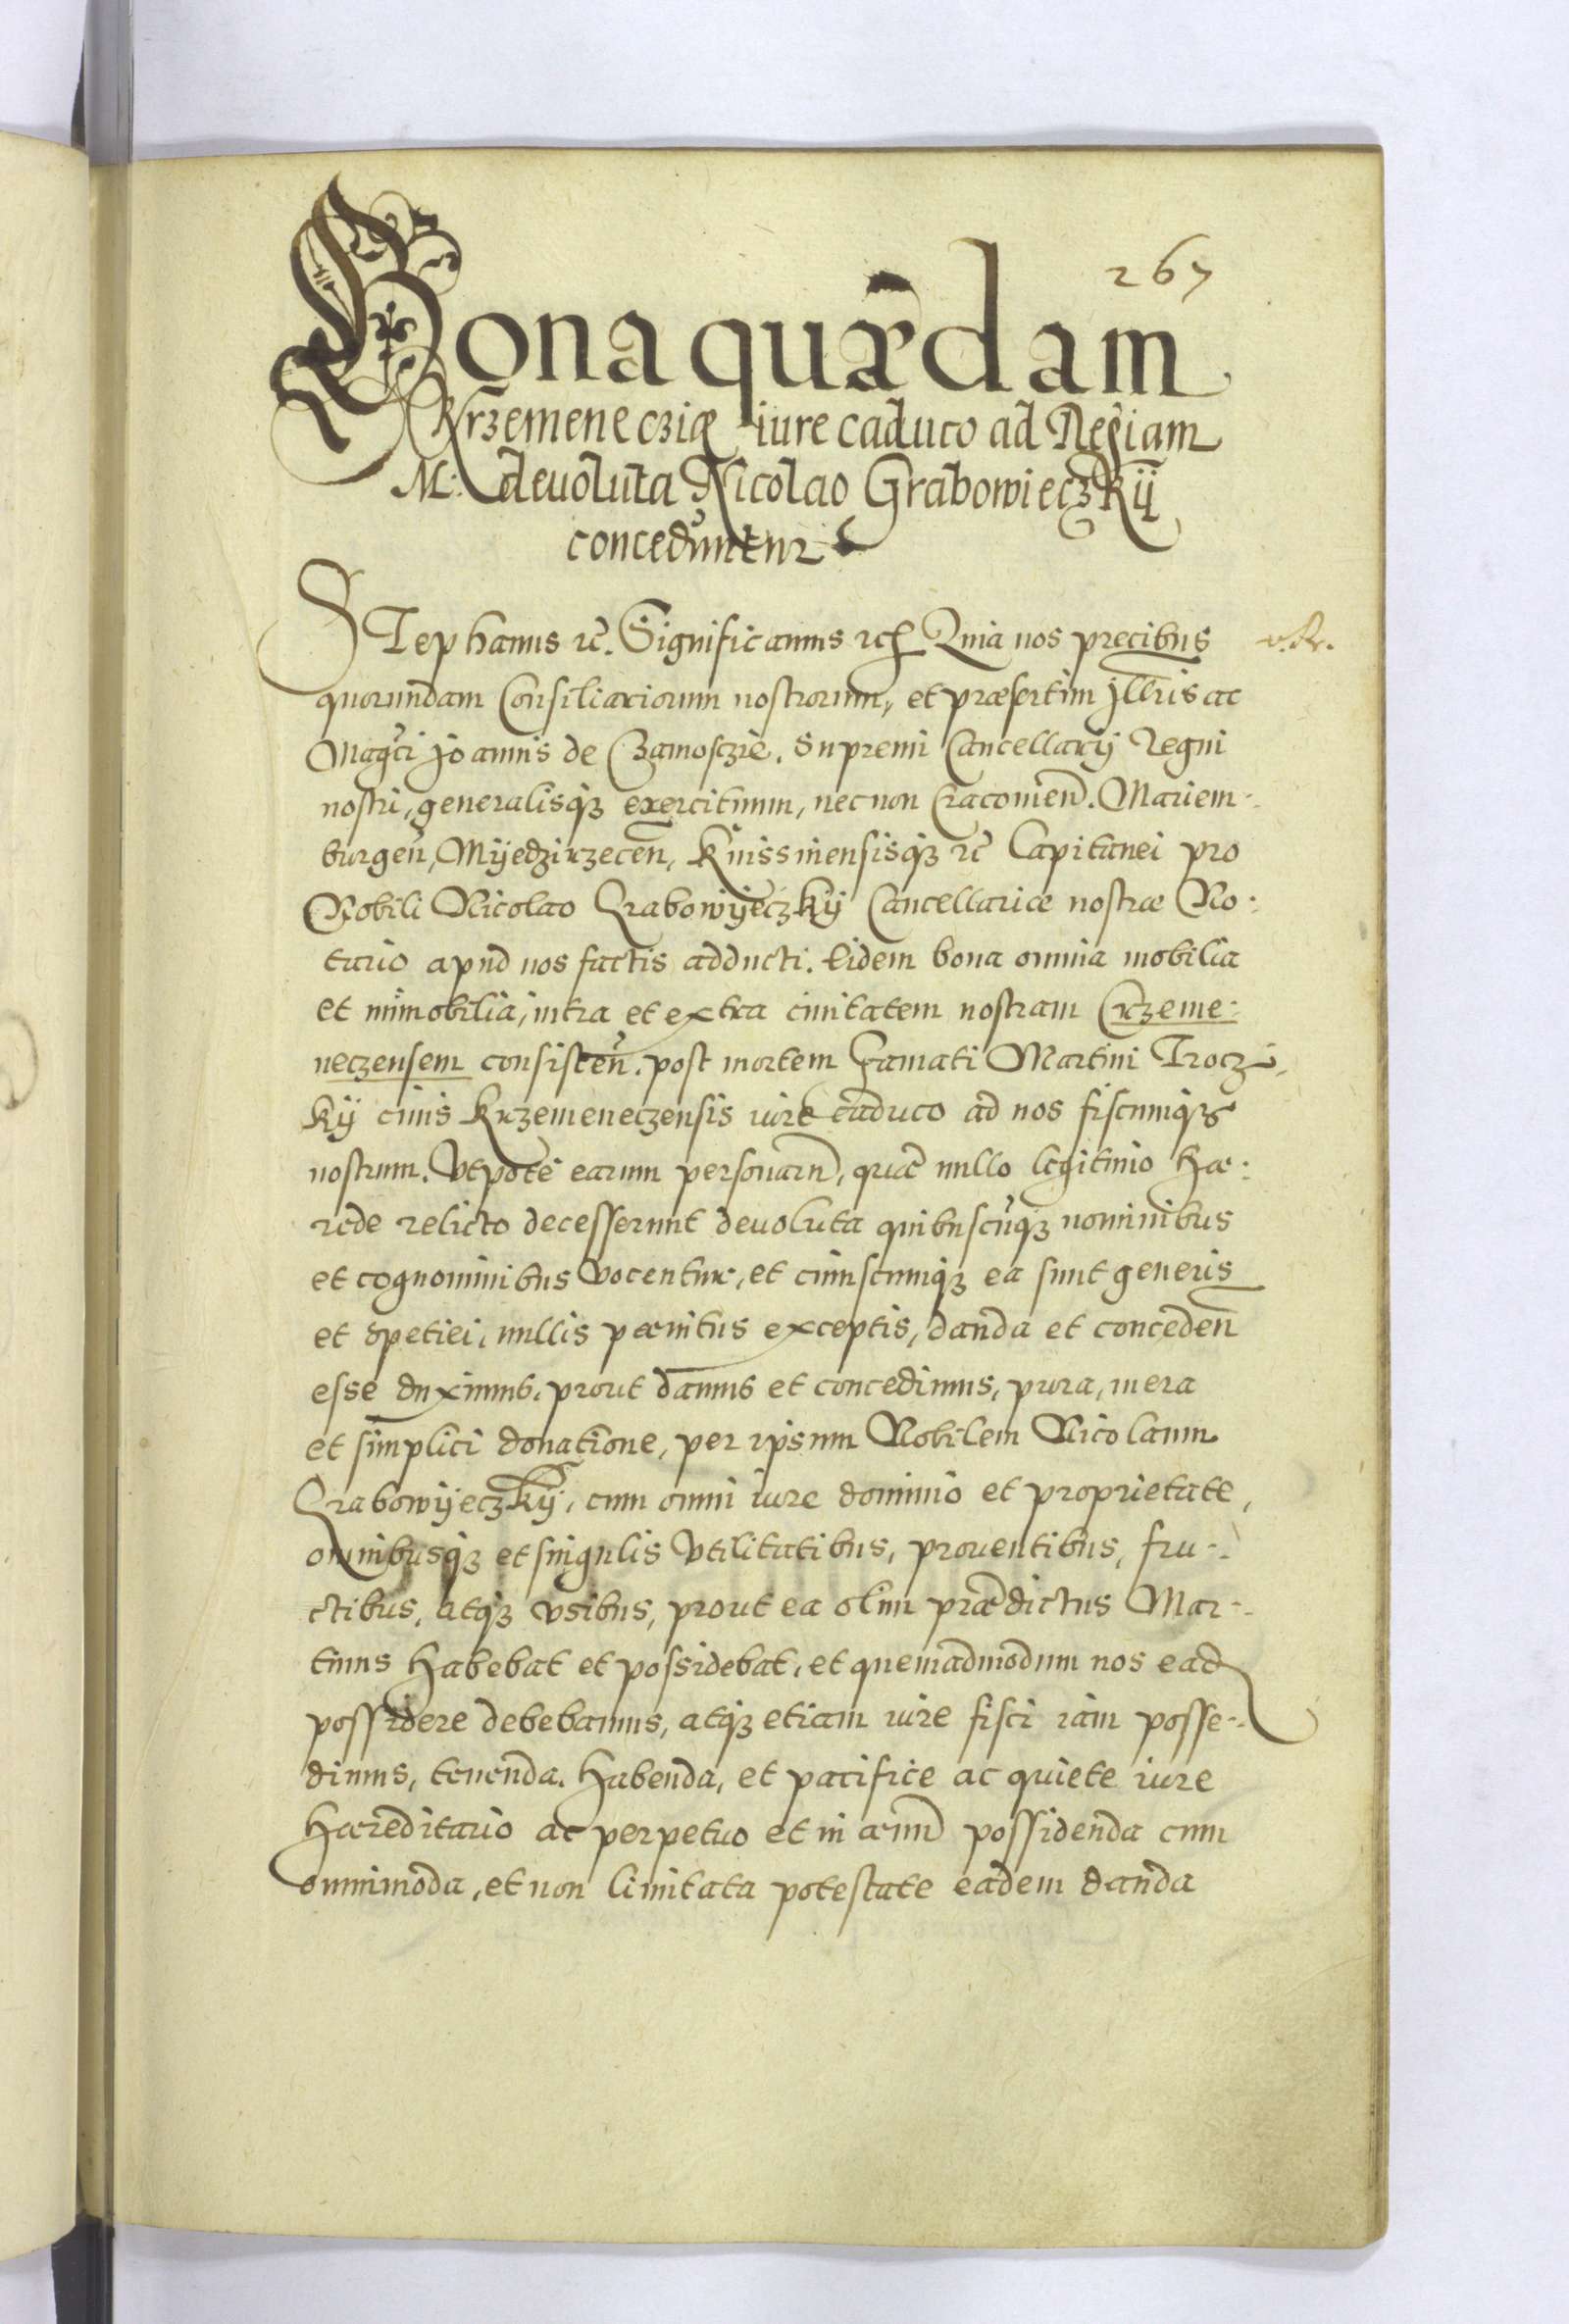 267
Bona quædam
Krzemeneciæ iure caduco ad Regiam
M: deuoluta Nicolao Grabowieczkij
conceduntur
Stephanus rc̃. Significamus rc̃ Quia nos precibus
quorundam Consiliariorum nostrorum, et præsertim Jllris ac
Magci Joannis de Czamosczie. Supremi Cancellarij Regni
nostri, generalisq3 exercituum, nec non Cracouień. Mariem-
burgeń, Myedzirzeceń, Knissinensisq3 rc̃ Capitanei pro
Nobili Nicolao Grabowÿeczkÿ Cancellariæ nostræ No:
tario apud nos factis adducti. Eidem bona omnia mobilia
et immobilia, intra et extra ciuitatem nostram Crzeme:
neczensem consisteń. post mortem Famati Martini Trocz-
kÿ ciuis Krzemeneczensis iure caduco ad nos fiscumq3
nostrum. Vtpote earum personarũ, quæ nullo legitimo hæ:
rede relicto decesserunt deuoluta quibuscũq3 nominibus
et cognominibus vocentur, et cuiuscumq3 ea sunt generis
et spetiei, nullis pænitus exceptis, danda et conceden̄
esse duximus, prout damus et concedimus, pura, mera
et simplici donatione, per ipsum Nobilem Nicolaum
Grabowÿeczkÿ, cum omni iure dominio et proprietate,
omnibusq3 et singulis vtilitatibus, prouentibus, fru-
ctibus, atq3 vsibus, prout ea olim prædictus Mar-
tinus habebat et possidebat, et quemadmodum nos ead
possidere debebamus, atq3 etiam iure fisci iam posse-
dimus, tenenda. habenda, et pacifice ac quiete iure
hæreditario ac perpetuo et in æuũ possidenda cum
omnimoda, et non limitata potestate eadem danda